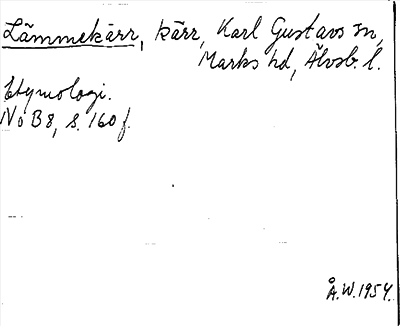 Lämmekärr, kärr, Karl Gustavs sn,
Marks hd, Älvsb. l.
Etymologi.
NoB 8, s. 160 f.
Å.W. 1954.